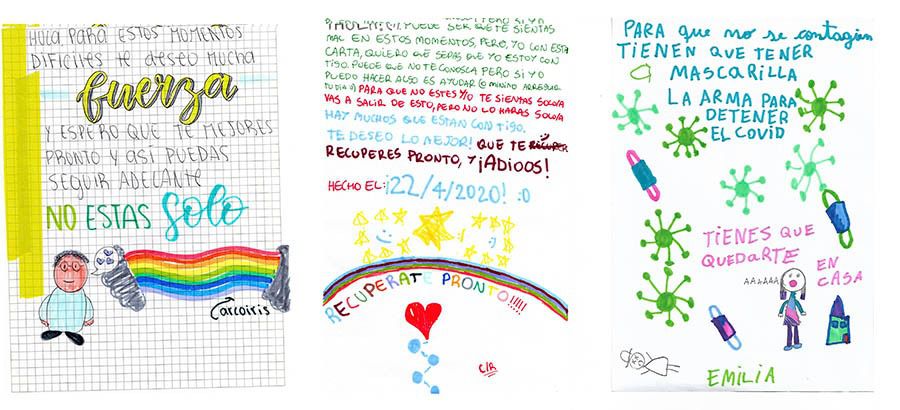 HOLA, PARA ESTOS MOMENTOS
DIFICILES te DESEO MUCHA
fuerza
Y ESPERO QUE TE MEJORES
PRONTO Y ASÍ PUEDAS
SEGUIR ADELANTE
NO ESTAS Solo
arcoiris
PUEDE SER QUE TE SIENTAS
MAL EN ESTOS MOMENTOS, PERO, YO CON ESTA
CARTA, QUIERO QUE SEPAS QUE YO ESTOY CON
TIGO. PUEDE QUE NO TE CONOSCA PERO SI YO
PUEDO HACER ALGO ES AYUDAR O MINIMO ARREGLAR
TU DIA :) PARA QUE NO ESTES Y/O TE SIENTAS SOLO/A
VAS A SALIR DE ESTO, PERO NO LO HARAS SOLO/A
HAY MUCHOS QUE ESTAN CON TIGO.
TE DESEO LO MEJOR! QUE TE
RECUPERES PRONTO, Y ¡ADIOOS!
HECHO EL: ¡22/4/2020! :O
RECUPERATE PRONTO!!!!!
C/R
PARA que no se contagien
TIENEN QUE TENER
MASCARILLA
LA ARMA PARA
DETENER
EL COVID
TIENES QUE
QUEDARTE
EN
CASA
AAAAAA
EMILIA